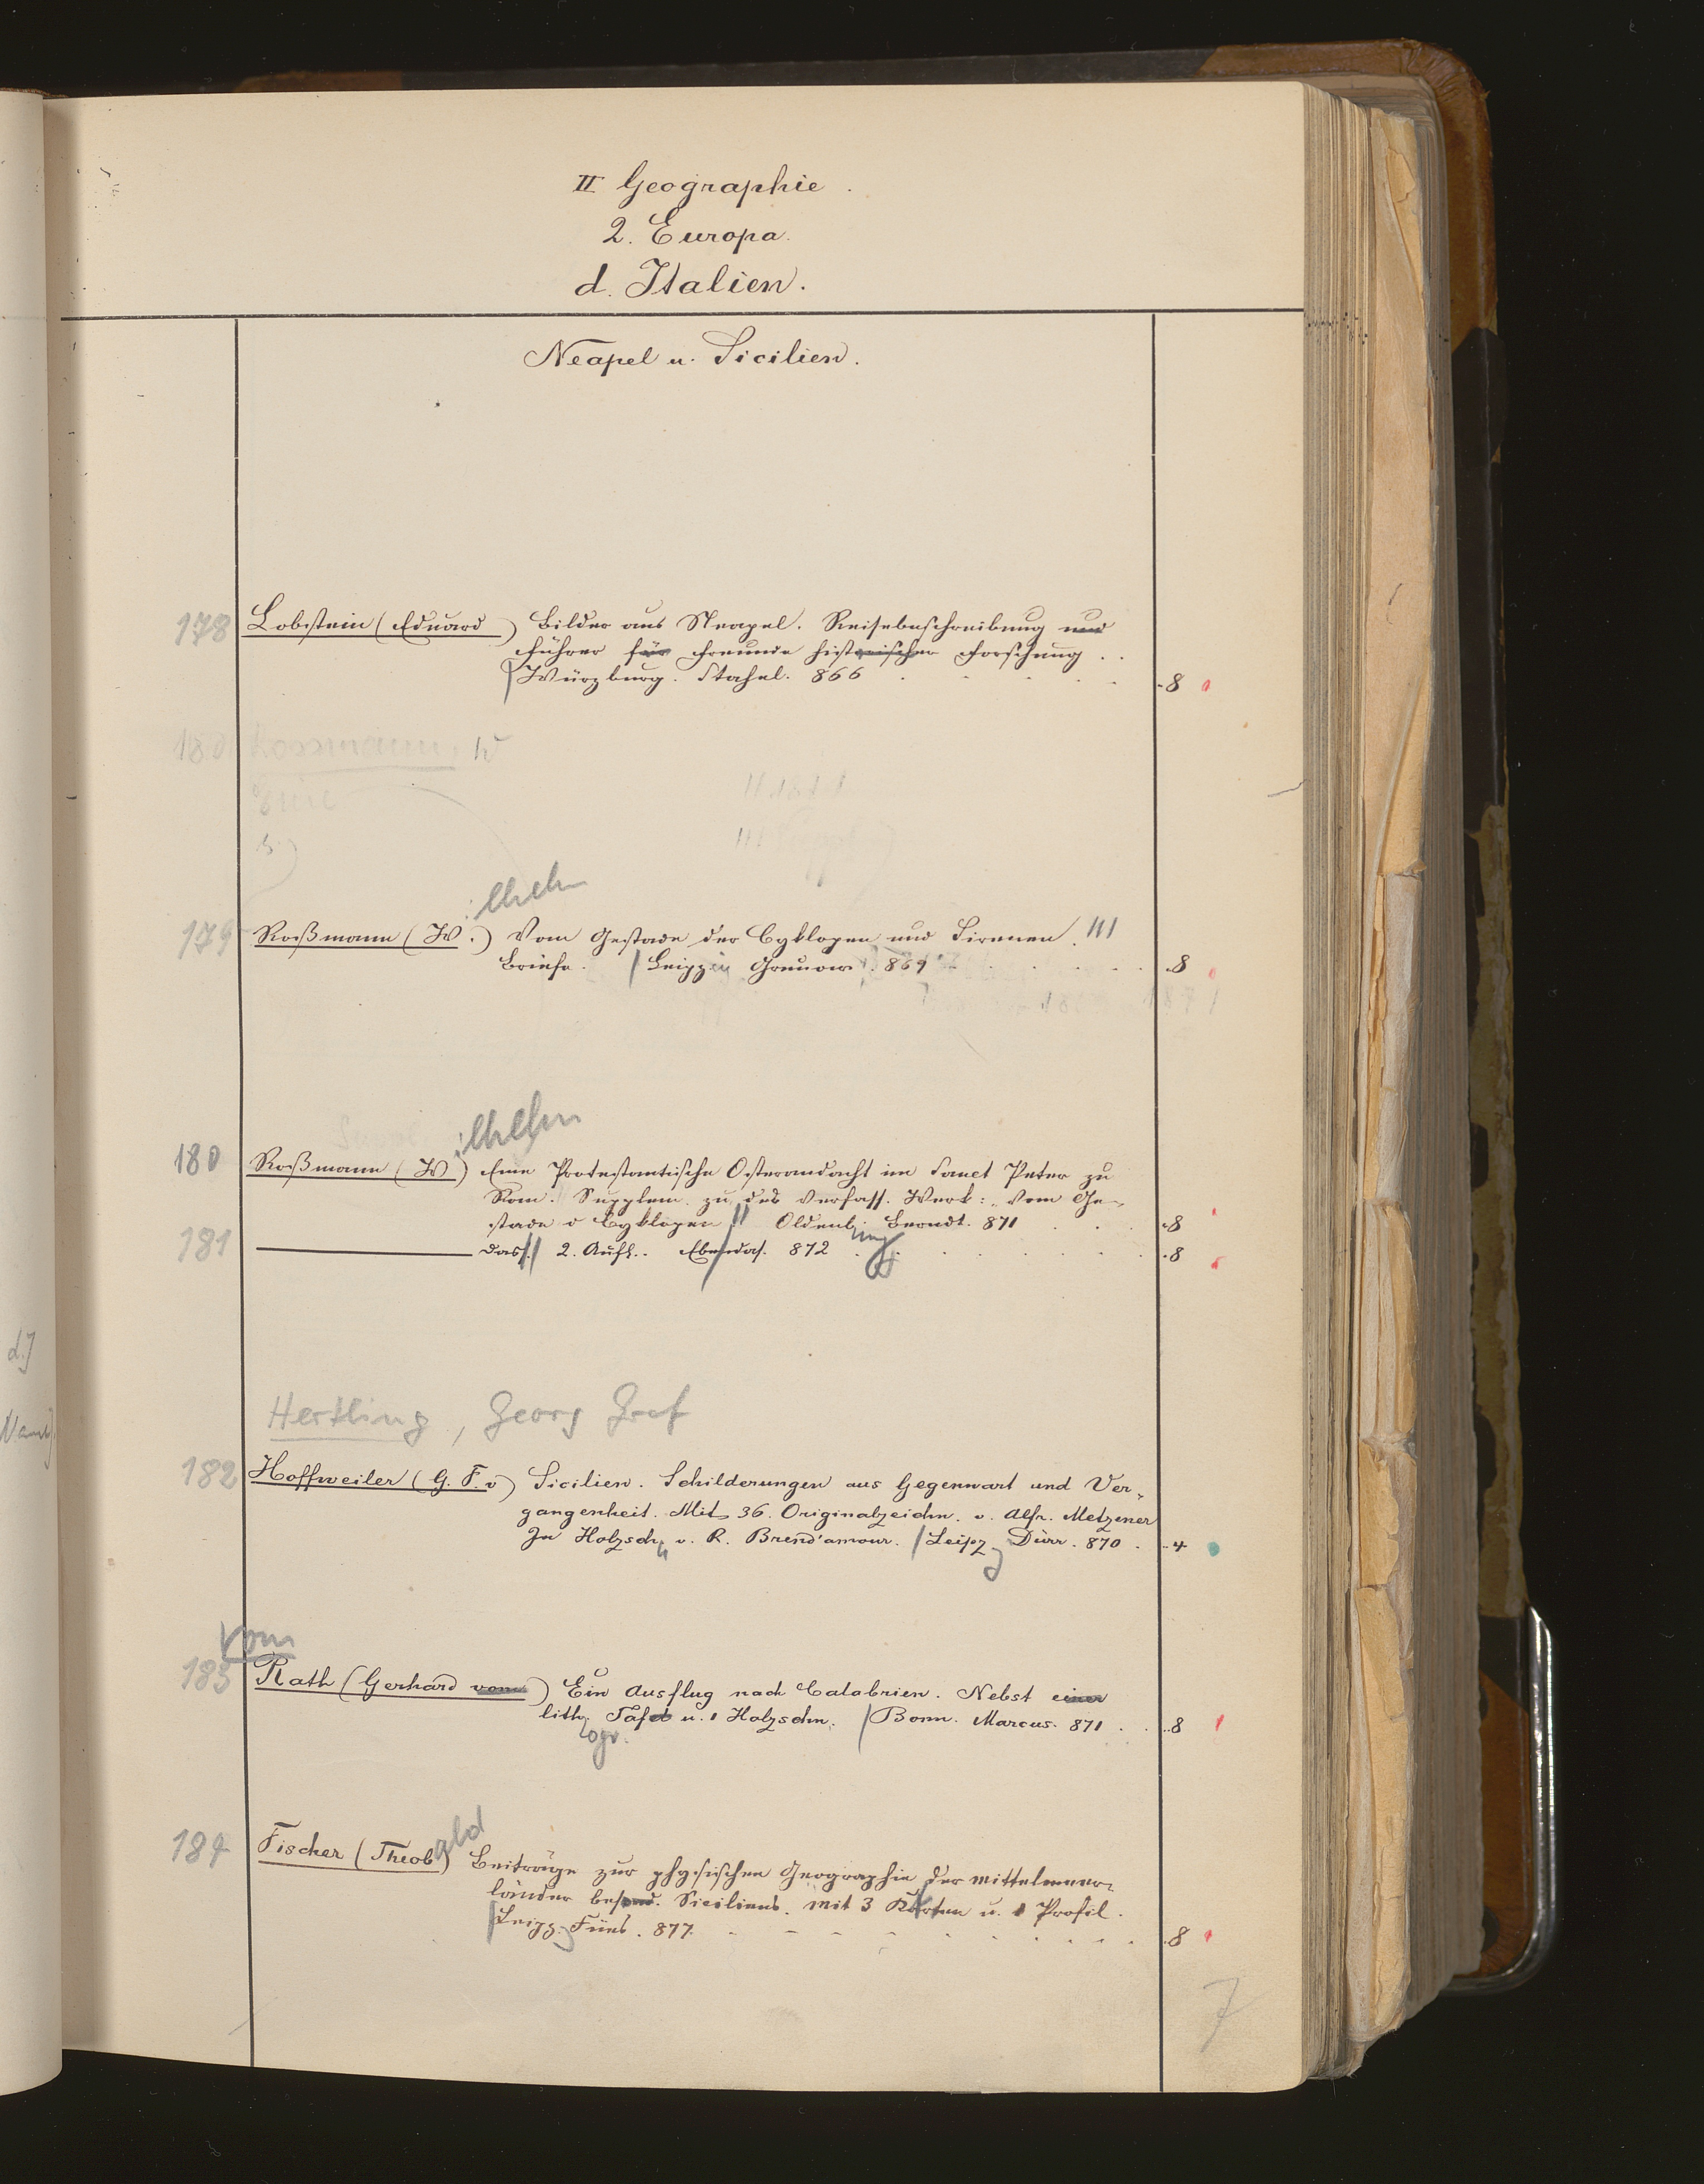 II Geographie.
2. Europa.
d. Italien.
Neapel u. Sicilien.
178 Lobstein (Eduard) Bilder aus Neapel. Reisebeschreibung und
Führer für Freunde historischer Forschung . .
Würzburg. Stahel. 866 . . . . . 8
ilhelm
179 Roßmann (W.) Vom Gestade der Cyklopen und Sirenen. III
Briefe. Leipzig Grunow. 869 . . . . . 8
ilhelm
180 Roßmann (W) Eine Protestantische Osterandacht im Sanct Peter zu
Rom. Supplem. zu des Verfass. Werk: „Vom Ge-
stade d Cyklopen" Oldenb. Berndt. 871 . . . 8
ung
181 ——— Dass. 2. Aufl.. Ebendas. 872 . . . . . . 8
Hertling, Georg Graf
182 Hoffweiler (G. F. v) Sicilien. Schilderungen aus Gegenwart und Ver-
gangenheit. Mit 36. Originalzeichn. v. Alfr. Metzener
In Holzsch. v. R. Brend'amour. Leipz Dürr. 870 . . 4
vom
183 Rath (Gerhard vom) Ein Ausflug nach Calabrien. Nebst einer
lith. Tafel u. 1 Holzschn. Bonn. Marcus. 871 . . . 8
ogr.
184 Fischer (Theobald) Beiträge zur physischen Geographie der Mittelmeer-
länder besond. Siciliens. Mit 3 Karten u. 1 Profil.
Leipz. Fues. 877. . . . . . . 8
7